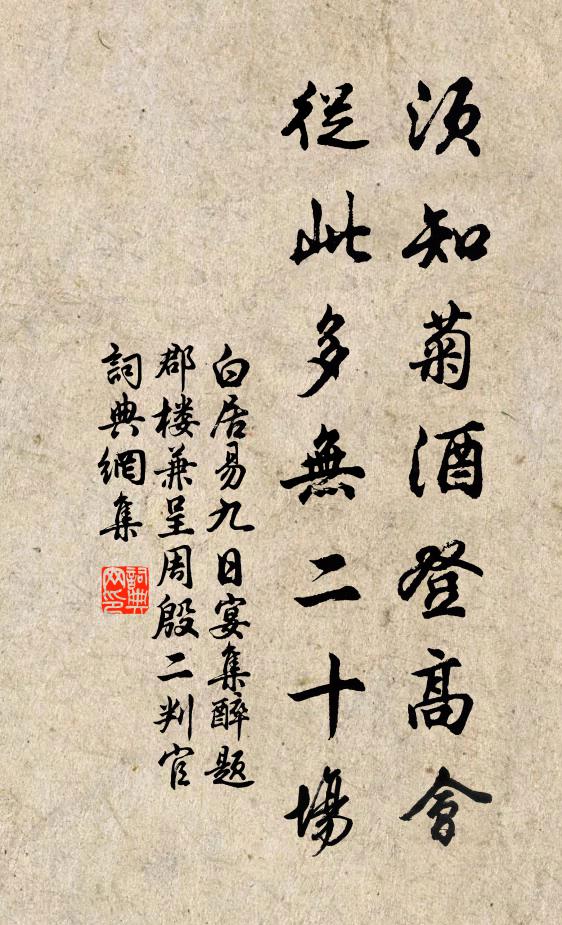 須知菊酒登高會
從此多無二十場
白居易九日宴集醉題
郡楼兼呈周殷二判官
詞典網集
詞典
网印